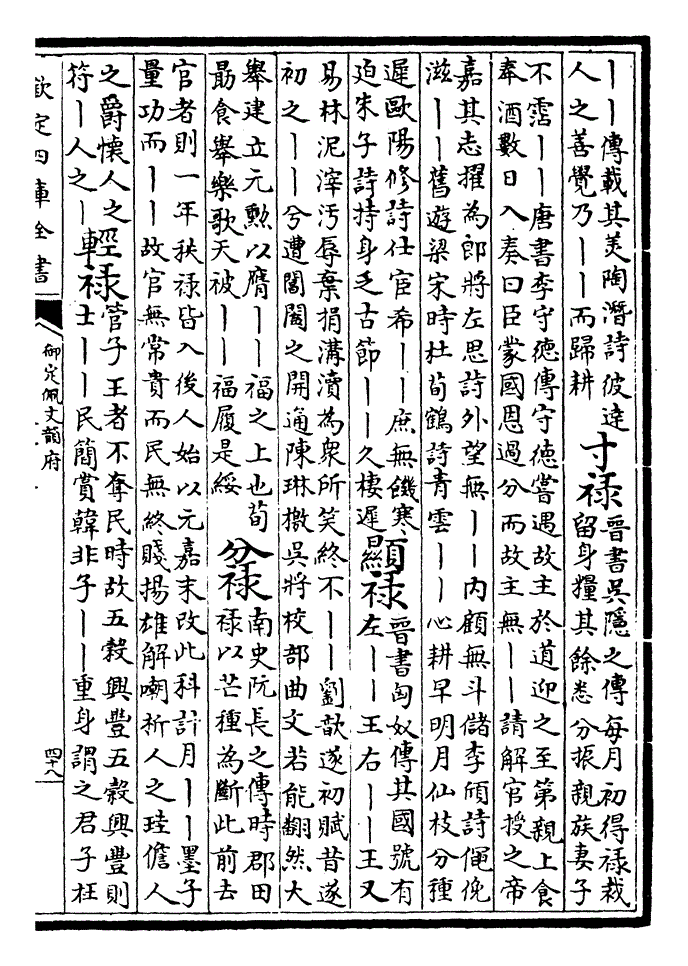 丨丨傳載其美陶潛詩彼達
人之善覺乃丨丨而歸耕
寸禄
晉書吳隱之傳每月初得禄裁
留身糧其餘悉分振親族妻子
不霑丨丨唐書李守德傳守德嘗遇故主於道迎之至第親上食
奉酒數日入奏曰臣蒙國恩過分而故主無丨丨請解官授之帝
嘉其志擢為郎將左思詩外望無丨丨内顧無斗儲李頎詩僶俛
滋丨丨舊遊梁宋時杜荀鶴詩青雲丨丨心耕早明月仙枝分種
遲歐陽修詩仕宦希丨丨庶無饑寒
迫朱子詩持身乏古節丨丨久棲遲
顯禄
晉書匈奴傳其國號有
左丨丨王右丨丨王又
易林泥滓汚辱棄捐溝瀆為衆所笑終不丨丨劉歆遂初賦昔遂
初之丨丨兮遭閶闔之開通陳琳檄吳將校部曲文若能翻然大
舉建立元勲以膺丨丨福之上也荀
勗食舉樂歌天被丨丨福履是綏
分禄
南史阮長之傳時郡田
禄以芒種為斷此前去
官者則一年秩禄皆入後人始以元嘉末改此科計月丨丨墨子
量功而丨丨故官無常貴而民無終賤揚雄解嘲析人之珪儋人
之爵懷人之
符丨人之丨
輕禄
管子王者不奪民時故五穀興豐五穀興豐則
士丨丨民簡賞韓非子丨丨重身謂之君子枉
欽定四庫全書
御定佩文韻府
四十八